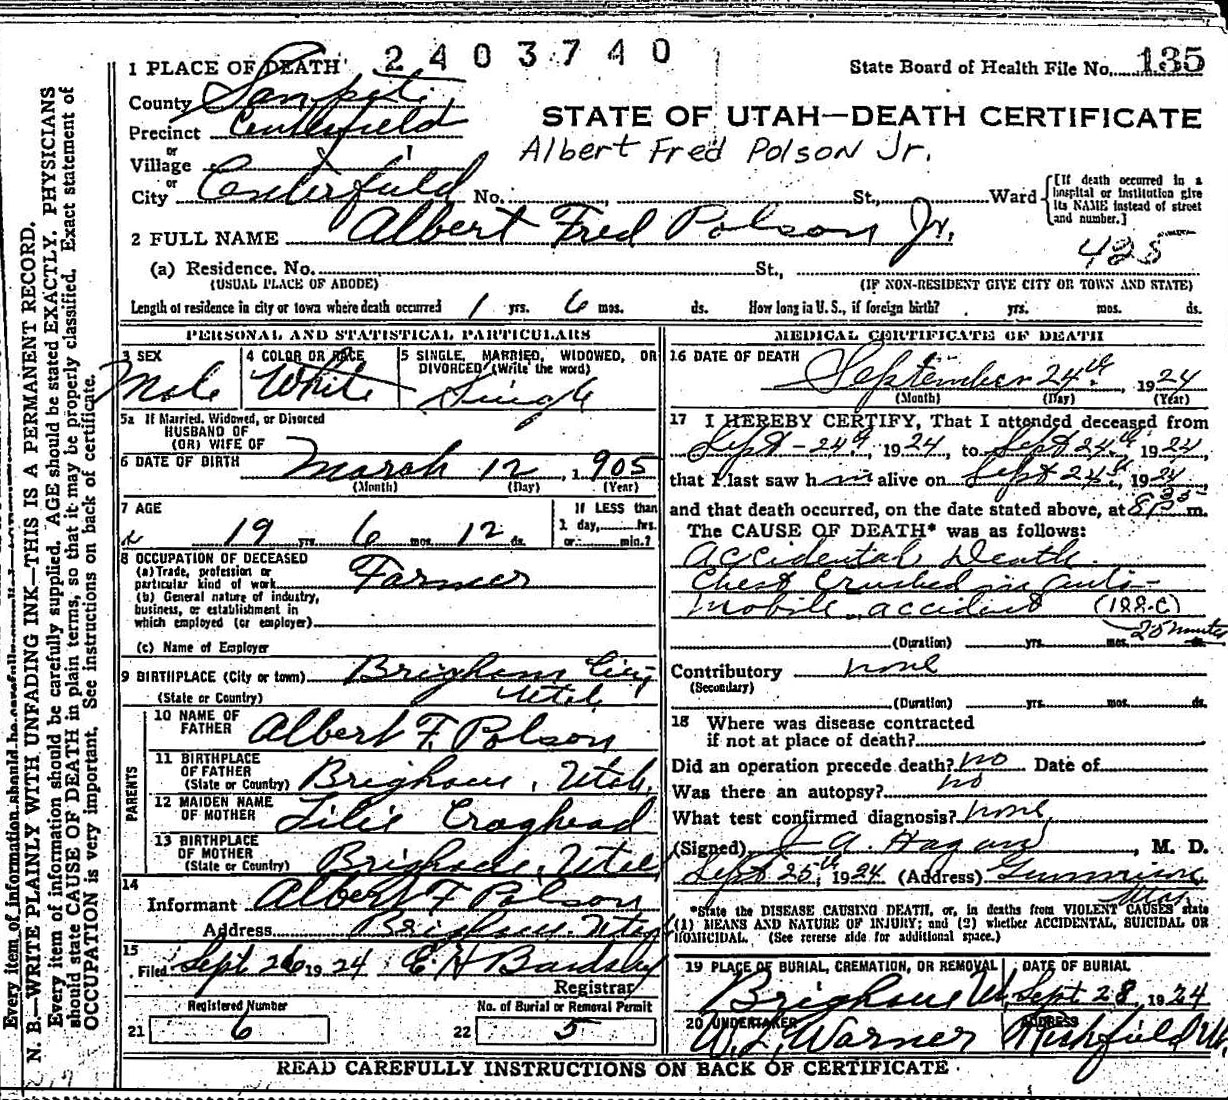 2403740
State Board of Health File No. 135
1 PLACE OF DEATH
County Sanpete
STATE OF UTAH—DEATH CERTIFICATE
Precinct Centerfield
Albert Fred Polson Jr.
or
Village
or
City Centerfield No. St., Ward
[If death occurred in a hospital or institution give its NAME instead of street and number.]
2 FULL NAME Albert Fred Polson Jr.
425
(a) Residence. No. St.,
(USUAL PLACE OF ABODE) (IF NON-RESIDENT GIVE CITY OR TOWN AND STATE)
Length of residence in city or town where death occurred 1 yrs. 6 mos. ds. How long in U.S., if foreign birth? yrs. mos. ds.
PERSONAL AND STATISTICAL PARTICULARS
3 SEX Male
4 COLOR OR RACE White
5 SINGLE, MARRIED, WIDOWED, OR DIVORCED (Write the word) Single
5a If Married, Widowed, or Divorced
HUSBAND OF
(OR) WIFE OF
6 DATE OF BIRTH March 12, 1905
(Month) (Day) (Year)
7 AGE 19 yrs. 6 mos. 12 ds.
If LESS than
1 day, hrs.
or min.?
8 OCCUPATION OF DECEASED
(a) Trade, profession or
particular kind of work Farmer
(b) General nature of industry,
business, or establishment in
which employed (or employer)
(c) Name of Employer
9 BIRTHPLACE (City or town) Brigham City
(State or Country) Utah
PARENTS
10 NAME OF FATHER Albert F. Polson
11 BIRTHPLACE OF FATHER
(State or Country) Brigham, Utah,
12 MAIDEN NAME OF MOTHER Lilie Craghead
13 BIRTHPLACE OF MOTHER
(State or Country) Brigham, Utah
14
Informant Albert F Polson
Address Brigham Utah
15
Filed Sept 26 1924 E H Bardsley
Registrar
Registered Number
21 6
No. of Burial or Removal Permit
22 5
MEDICAL CERTIFICATE OF DEATH
16 DATE OF DEATH
September 24th, 1924
(Month) (Day) (Year)
17 I HEREBY CERTIFY, That I attended deceased from
Sept - 24th, 1924, to Sept 24th, 1924,
that I last saw him alive on Sept 24th, 1924
and that death occurred, on the date stated above, at m.
The CAUSE OF DEATH* was as follows:
Accidental Death
Chest Crushed in auto-
mobile accident (188-C)
25 minutes
(Duration) yrs. mos. ds.
Contributory none
(Secondary)
(Duration) yrs. mos. ds.
18 Where was disease contracted
if not at place of death?
Did an operation precede death? no Date of
Was there an autopsy? no
What test confirmed diagnosis? none
(Signed) J A. Hagan, M. D.
Sept 25th, 1924 (Address) Gunnison
Utah
*State the DISEASE CAUSING DEATH, or, in deaths from VIOLENT CAUSES state
(1) MEANS AND NATURE OF INJURY; and (2) whether ACCIDENTAL, SUICIDAL OR
HOMICIDAL. (See reverse side for additional space.)
19 PLACE OF BURIAL, CREMATION, OR REMOVAL DATE OF BURIAL
Brigham Ut. Sept 28, 1924
20 UNDERTAKER ADDRESS
W. L. Warner Richfield Ut.
READ CAREFULLY INSTRUCTIONS ON BACK OF CERTIFICATE
N. B.—WRITE PLAINLY WITH UNFADING INK—THIS IS A PERMANENT RECORD.
Every item of information should be carefully supplied. AGE should be stated EXACTLY. PHYSICIANS
should state CAUSE OF DEATH in plain terms, so that it may be properly classified. Exact statement of
OCCUPATION is very important. See instructions on back of certificate.